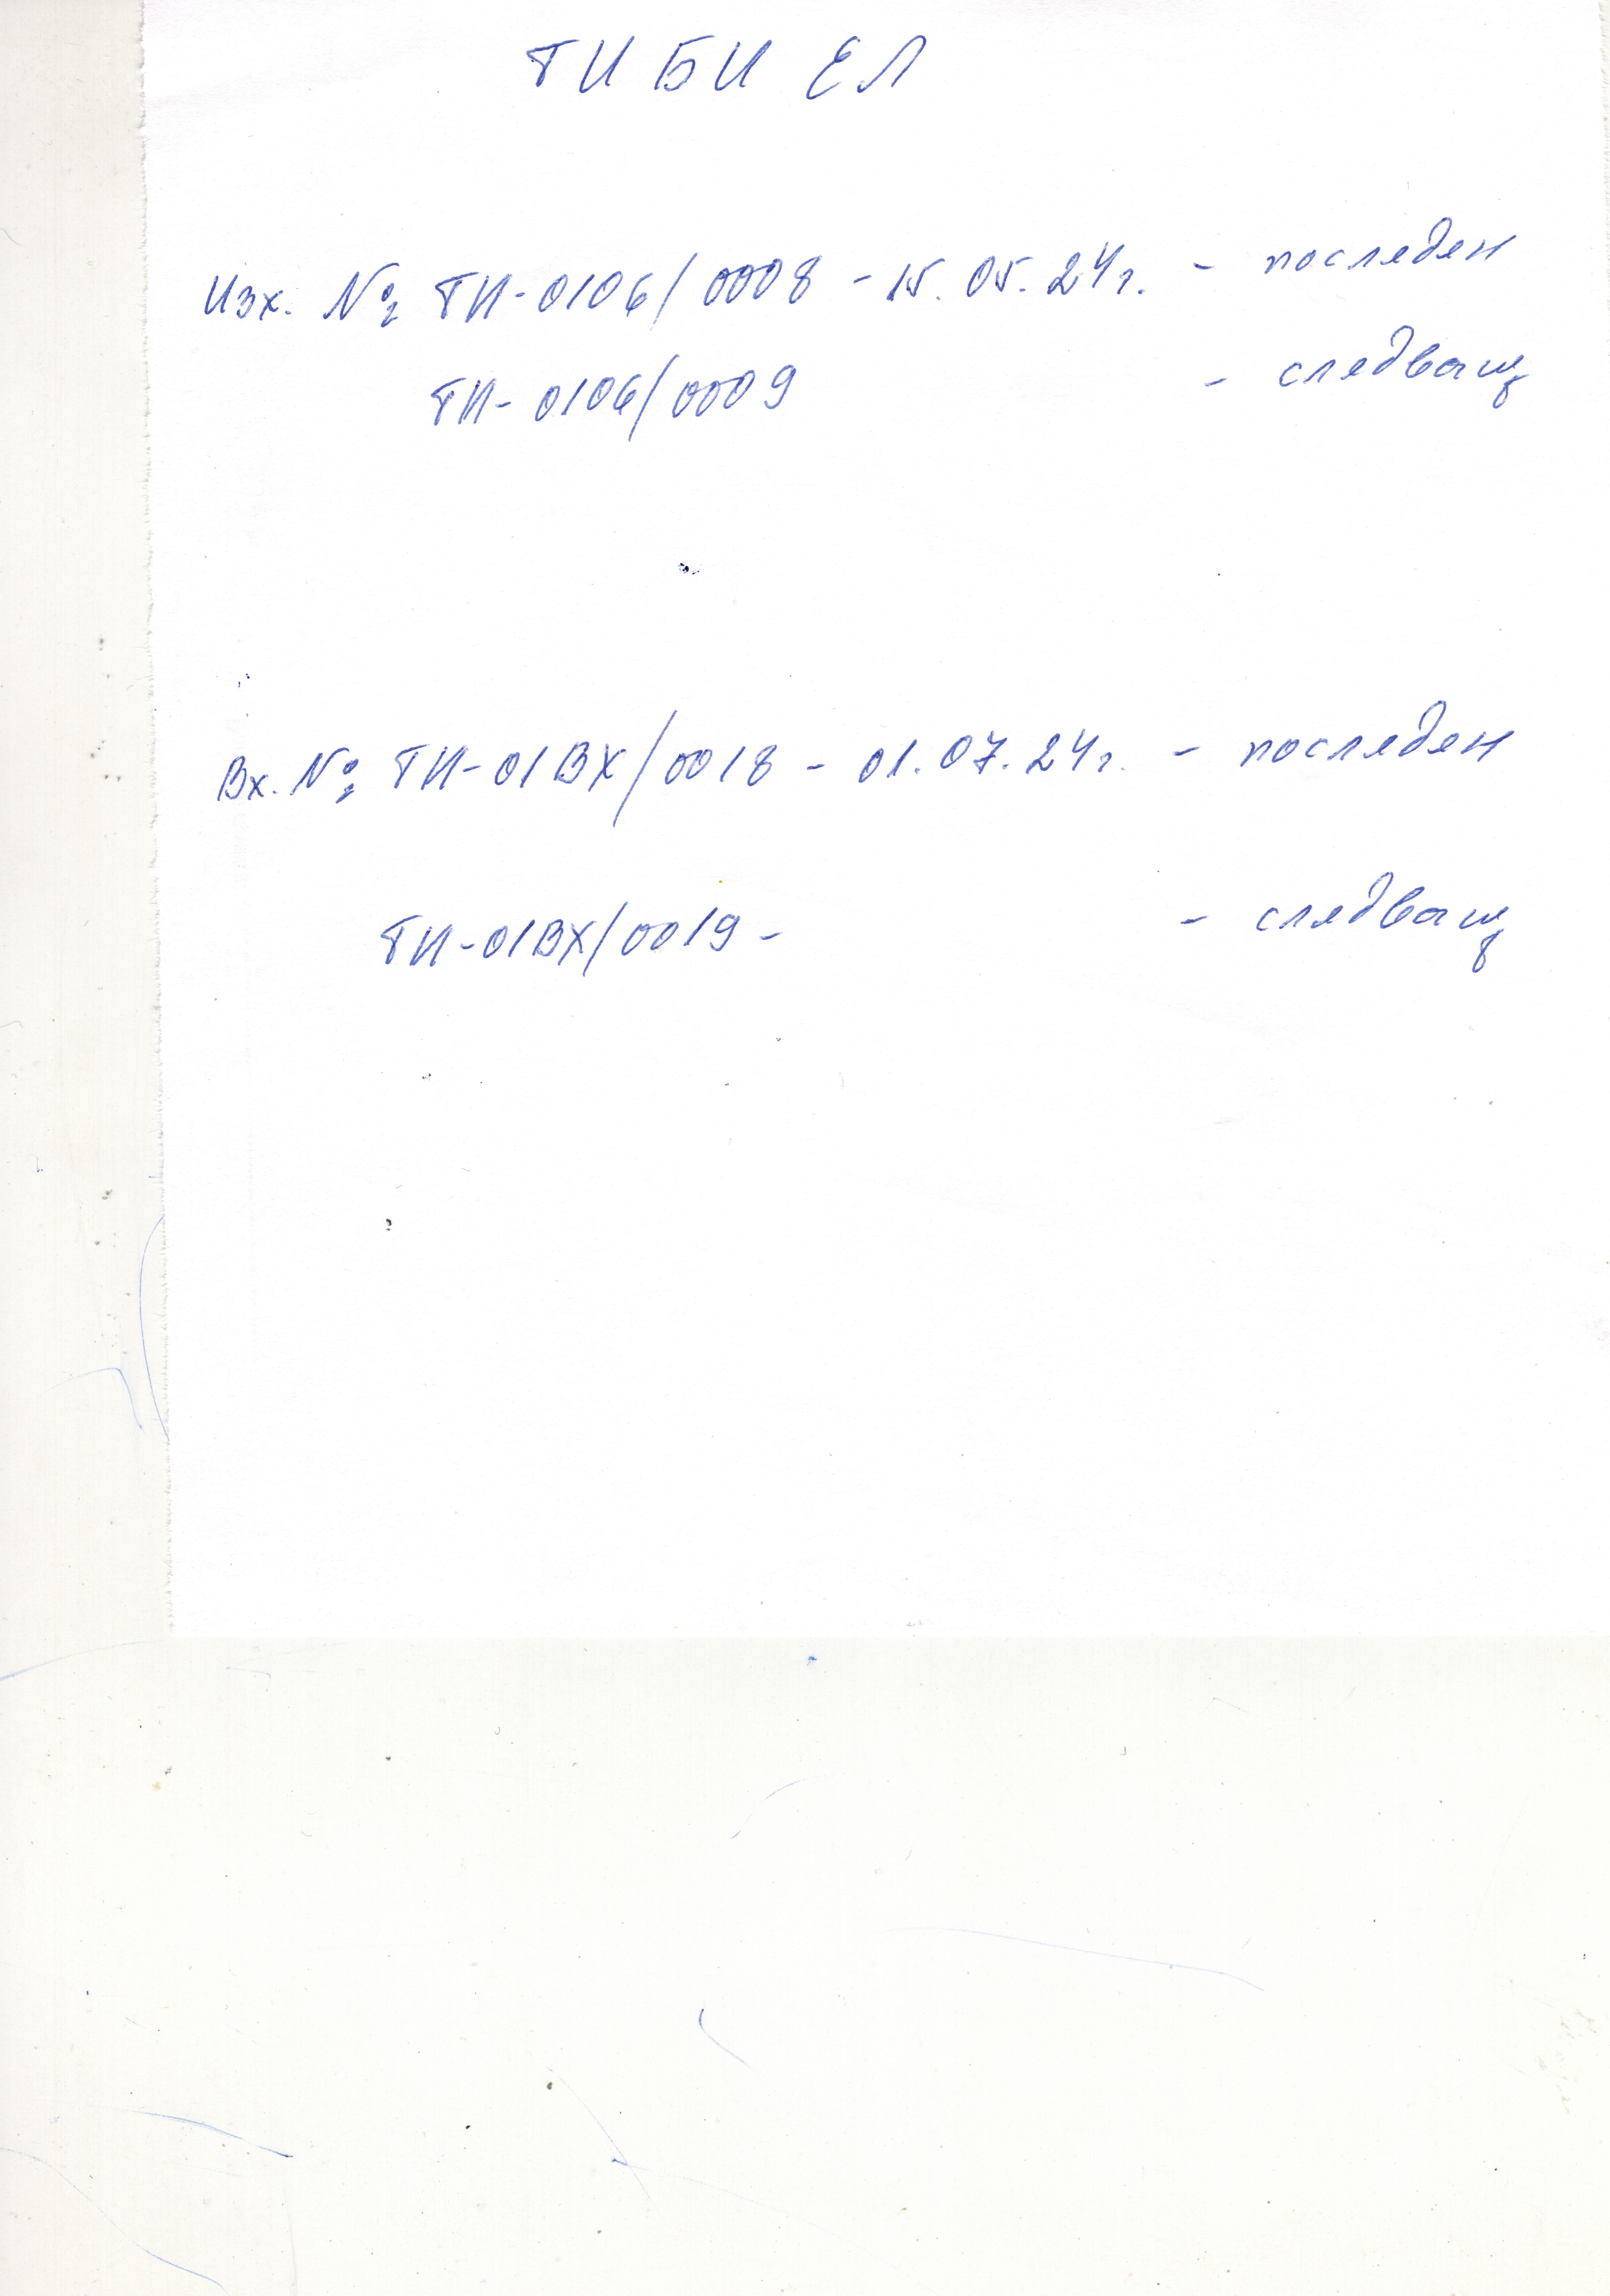 ТИ БИ ЕЛ
Изх. № ТИ-0106/0008 - 15.05.24г. - последен
ТИ-0106/0009 - следващ
Вх. № ТИ-01ВХ/0018 - 01.07.24г. - последен
ТИ-01ВХ/0019 - - следващ